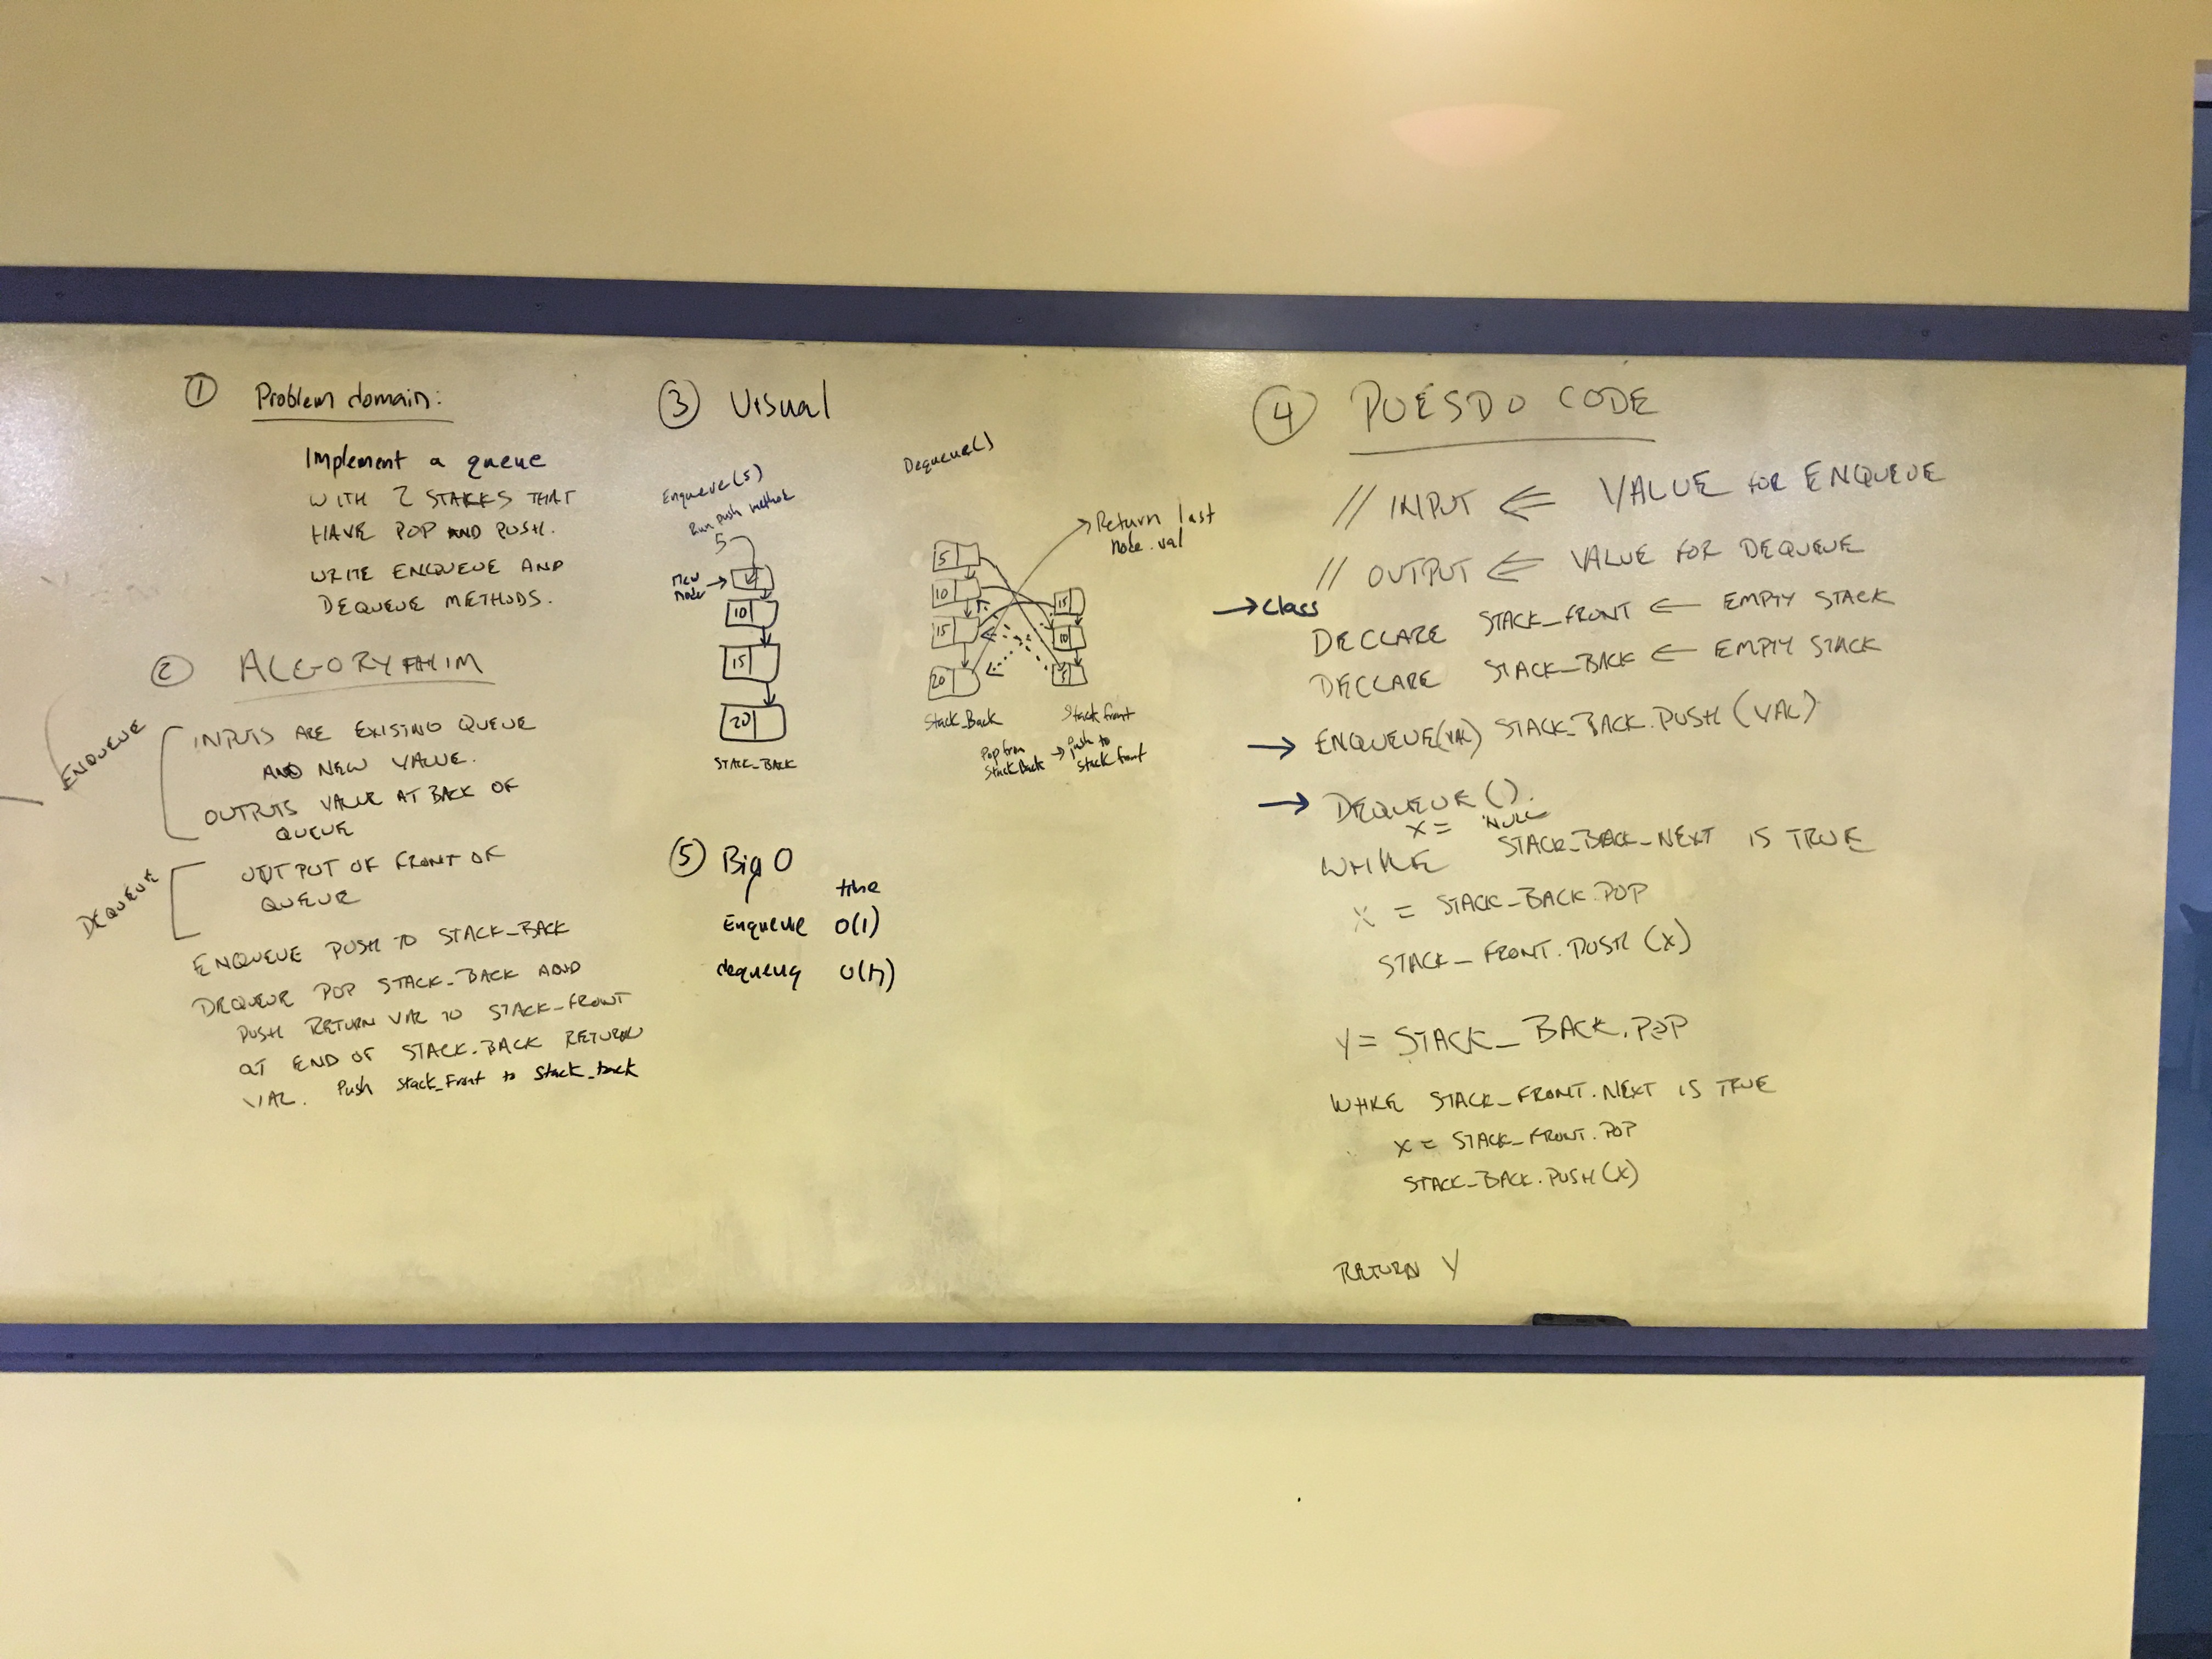 ① Problem domain:
Implement a queue
WITH 2 STAKKS THAT
HAVE POP AND PUSH.
WRITE ENQUEUE AND
DEQUEUE METHODS.
② ALGORYTHIM
ENQUEUE
INPUTS ARE EXISTING QUEUE
AND NEW VALUE.
OUTPUTS VALUE AT BACK OF
QUEUE
DEQUEUE
OUTPUT OF FRONT OF
QUEUE
ENQUEUE PUSH TO STACK_BACK
DEQUEUE POP STACK_BACK AND
PUSH RETURN VAL TO STACK_FRONT
AT END OF STACK_BACK RETURN
VAL. Push Stack_Front to Stack_back
③ Visual
Enqueue(5)
Run push method
5
New node
10
15
20
STACK_BACK
Dequeue()
Return last
node.val
5
10
15
20
15
10
5
Stack_Back
Stack front
Pop from
Stack Back
Push to
stack front
⑤ Big O
time
Enqueue O(1)
dequeue O(n)
④ PUESDO CODE
// INPUT ⇐ VALUE FOR ENQUEUE
// OUTPUT ⇐ VALUE FOR DEQUEUE
→ Class
DECLARE STACK_FRONT ← EMPTY STACK
DECLARE STACK_BACK ← EMPTY STACK
→ ENQUEUE(VAL) STACK_BACK.PUSH(VAL)
→ DEQUEUE().
X = NULL
WHILE STACK_BACK_NEXT IS TRUE
X = STACK_BACK.POP
STACK_FRONT.PUSH(X)
Y = STACK_BACK.POP
WHILE STACK_FRONT.NEXT IS TRUE
X = STACK_FRONT.POP
STACK_BACK.PUSH(X)
RETURN Y